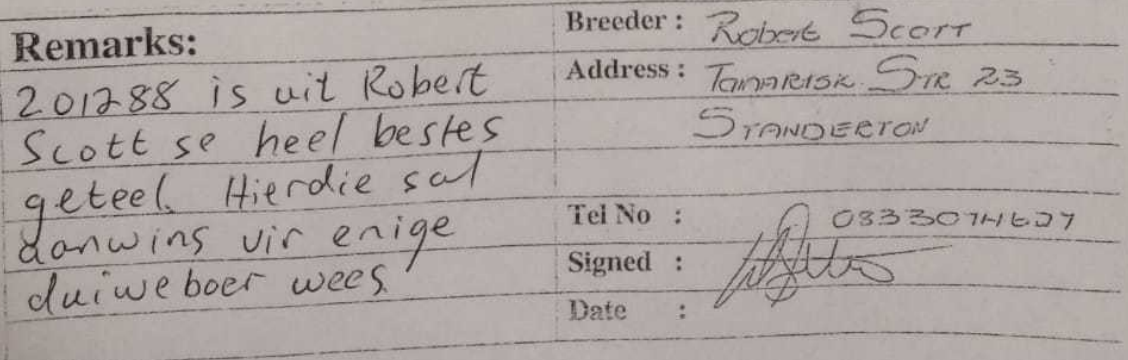 Remarks:
201288 is uit Robert
Scott se heel bestes
geteel. Hierdie sal
aanwins vir enige
duiweboer wees
Breeder : Robert Scott
Address : Tamarisk Str 23
STANDERTON
Tel No :
Signed :
Date :